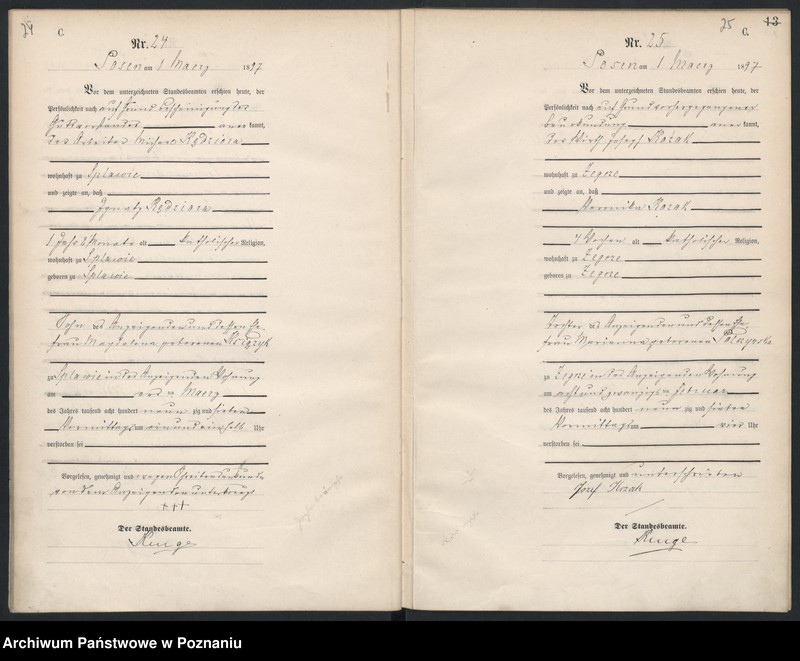 24
C.
Nr. 24
Posen am 1 Maerz 1897
Vor dem unterzeichneten Standesbeamten erschien heute, der
Persönlichkeit nach auf Grund Bescheinigung des
Gutsvorstandes anerkannt,
der Arbeiter Michael Kędziora
wohnhaft zu Splawie
und zeigte an, daß
Ignatz Kędziora
1 Jahr 2 Monate alt katholischer Religion,
wohnhaft zu Splawie
geboren zu Splawie
Sohn des Anzeigenden und dessen Ehe-
frau Magdalena geborenen
zu Splawie in des Anzeigenden Wohnung
am ersten Maerz
des Jahres tausend acht hundert neunzig und sieben
Vormittags um ein und ein halb Uhr
verstorben sei
Vorgelesen, genehmigt und wegen Schreibensunkunde
von dem Anzeigenden unterkreuzt
+++
Der Standesbeamte.
Runge
25
C.
13
Nr. 25
Posen am 1 Maerz 1897
Vor dem unterzeichneten Standesbeamten erschien heute, der
Persönlichkeit nach auf Grund vorhergegangener
Beurkundung anerkannt,
der Wirth Joseph Kozak
wohnhaft zu Zegrze
und zeigte an, daß
Veronika Kozak
4 Wochen alt katholischer Religion,
wohnhaft zu Zegrze
geboren zu Zegrze
Tochter des Anzeigenden und dessen Ehe-
frau Marianna geborenen
zu Zegrze in des Anzeigenden Wohnung
am acht und zwanzigsten Februar
des Jahres tausend acht hundert neunzig und sieben
Vormittags um vier Uhr
verstorben sei
Vorgelesen, genehmigt und unterschrieben
Józef Kozak
Der Standesbeamte.
Runge
Archiwum Państwowe w Poznaniu